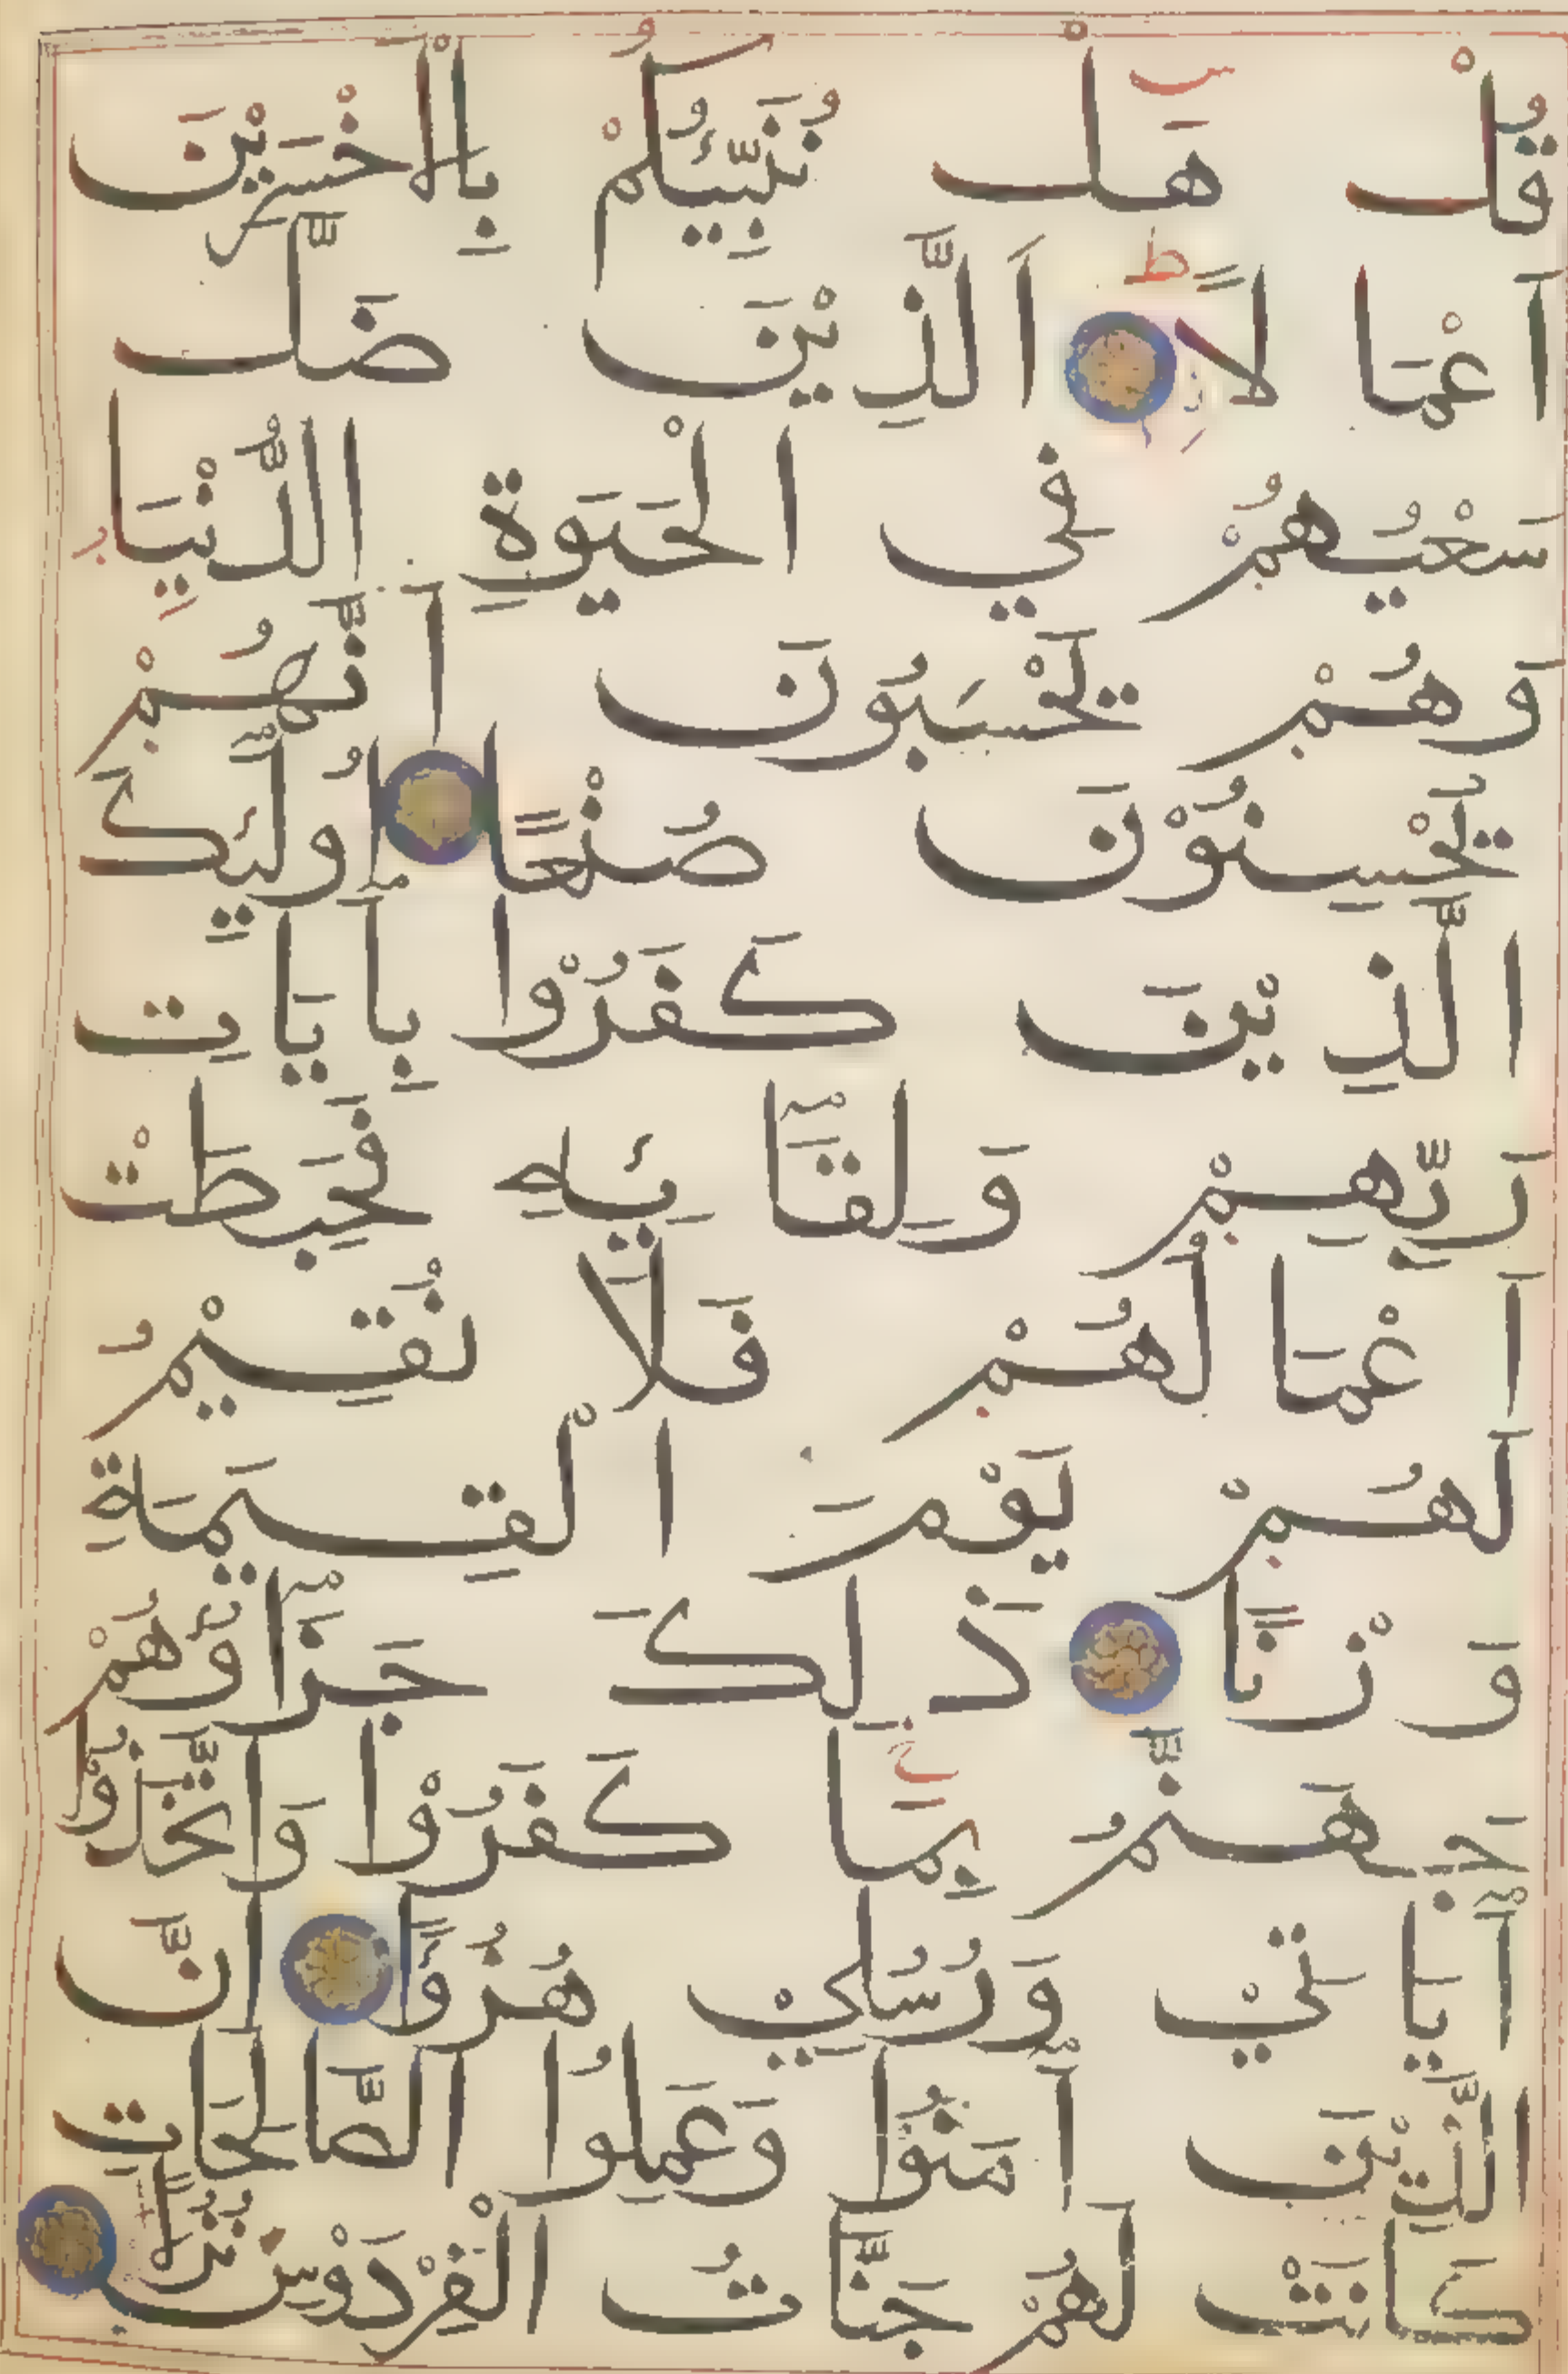 قُلْ هَلْ نُنَبِّيُكُمْ بِالْاَخْسَرِيْنَ
اَعْمَا لًا اَلَّذِيْنَ ضَلَّ
سَعْيُهُمْ فِي الْحَيَوةِ الدُّنْيَا
وَهُمْ يَحْسَبُونَ اَنَّهُمْ
يُحْسِنُوْنَ صُنْعًا اُولٰٓئِكَ
الَّذِيْنَ كَفَرُوْا بِاٰيَاتِ
رَبِّهِمْ وَلِقَآئِهِ فَحَبِطَتْ
اَعْمَا لُهُمْ فَلَا نُقِيْمُ
لَهُمْ يَوْمَ الْقِيَمَةِ
وَزْنًا ذَ لِكَ جَزَآؤُهُمْ
جَهَنَّمُ بِمَا كَفَرُوْا وَاتَّخَذُوْا
اٰيَاتِيْ وَرُسُلِيْ هُزُوًا اِنَّ
الَّذِيْنَ اٰمَنُوْا وَعَمِلُوا الصَّالِحَاتِ
كَانَتْ لَهُمْ جَنَّاتُ الْفِرْدَوْسِ نُزُلًا